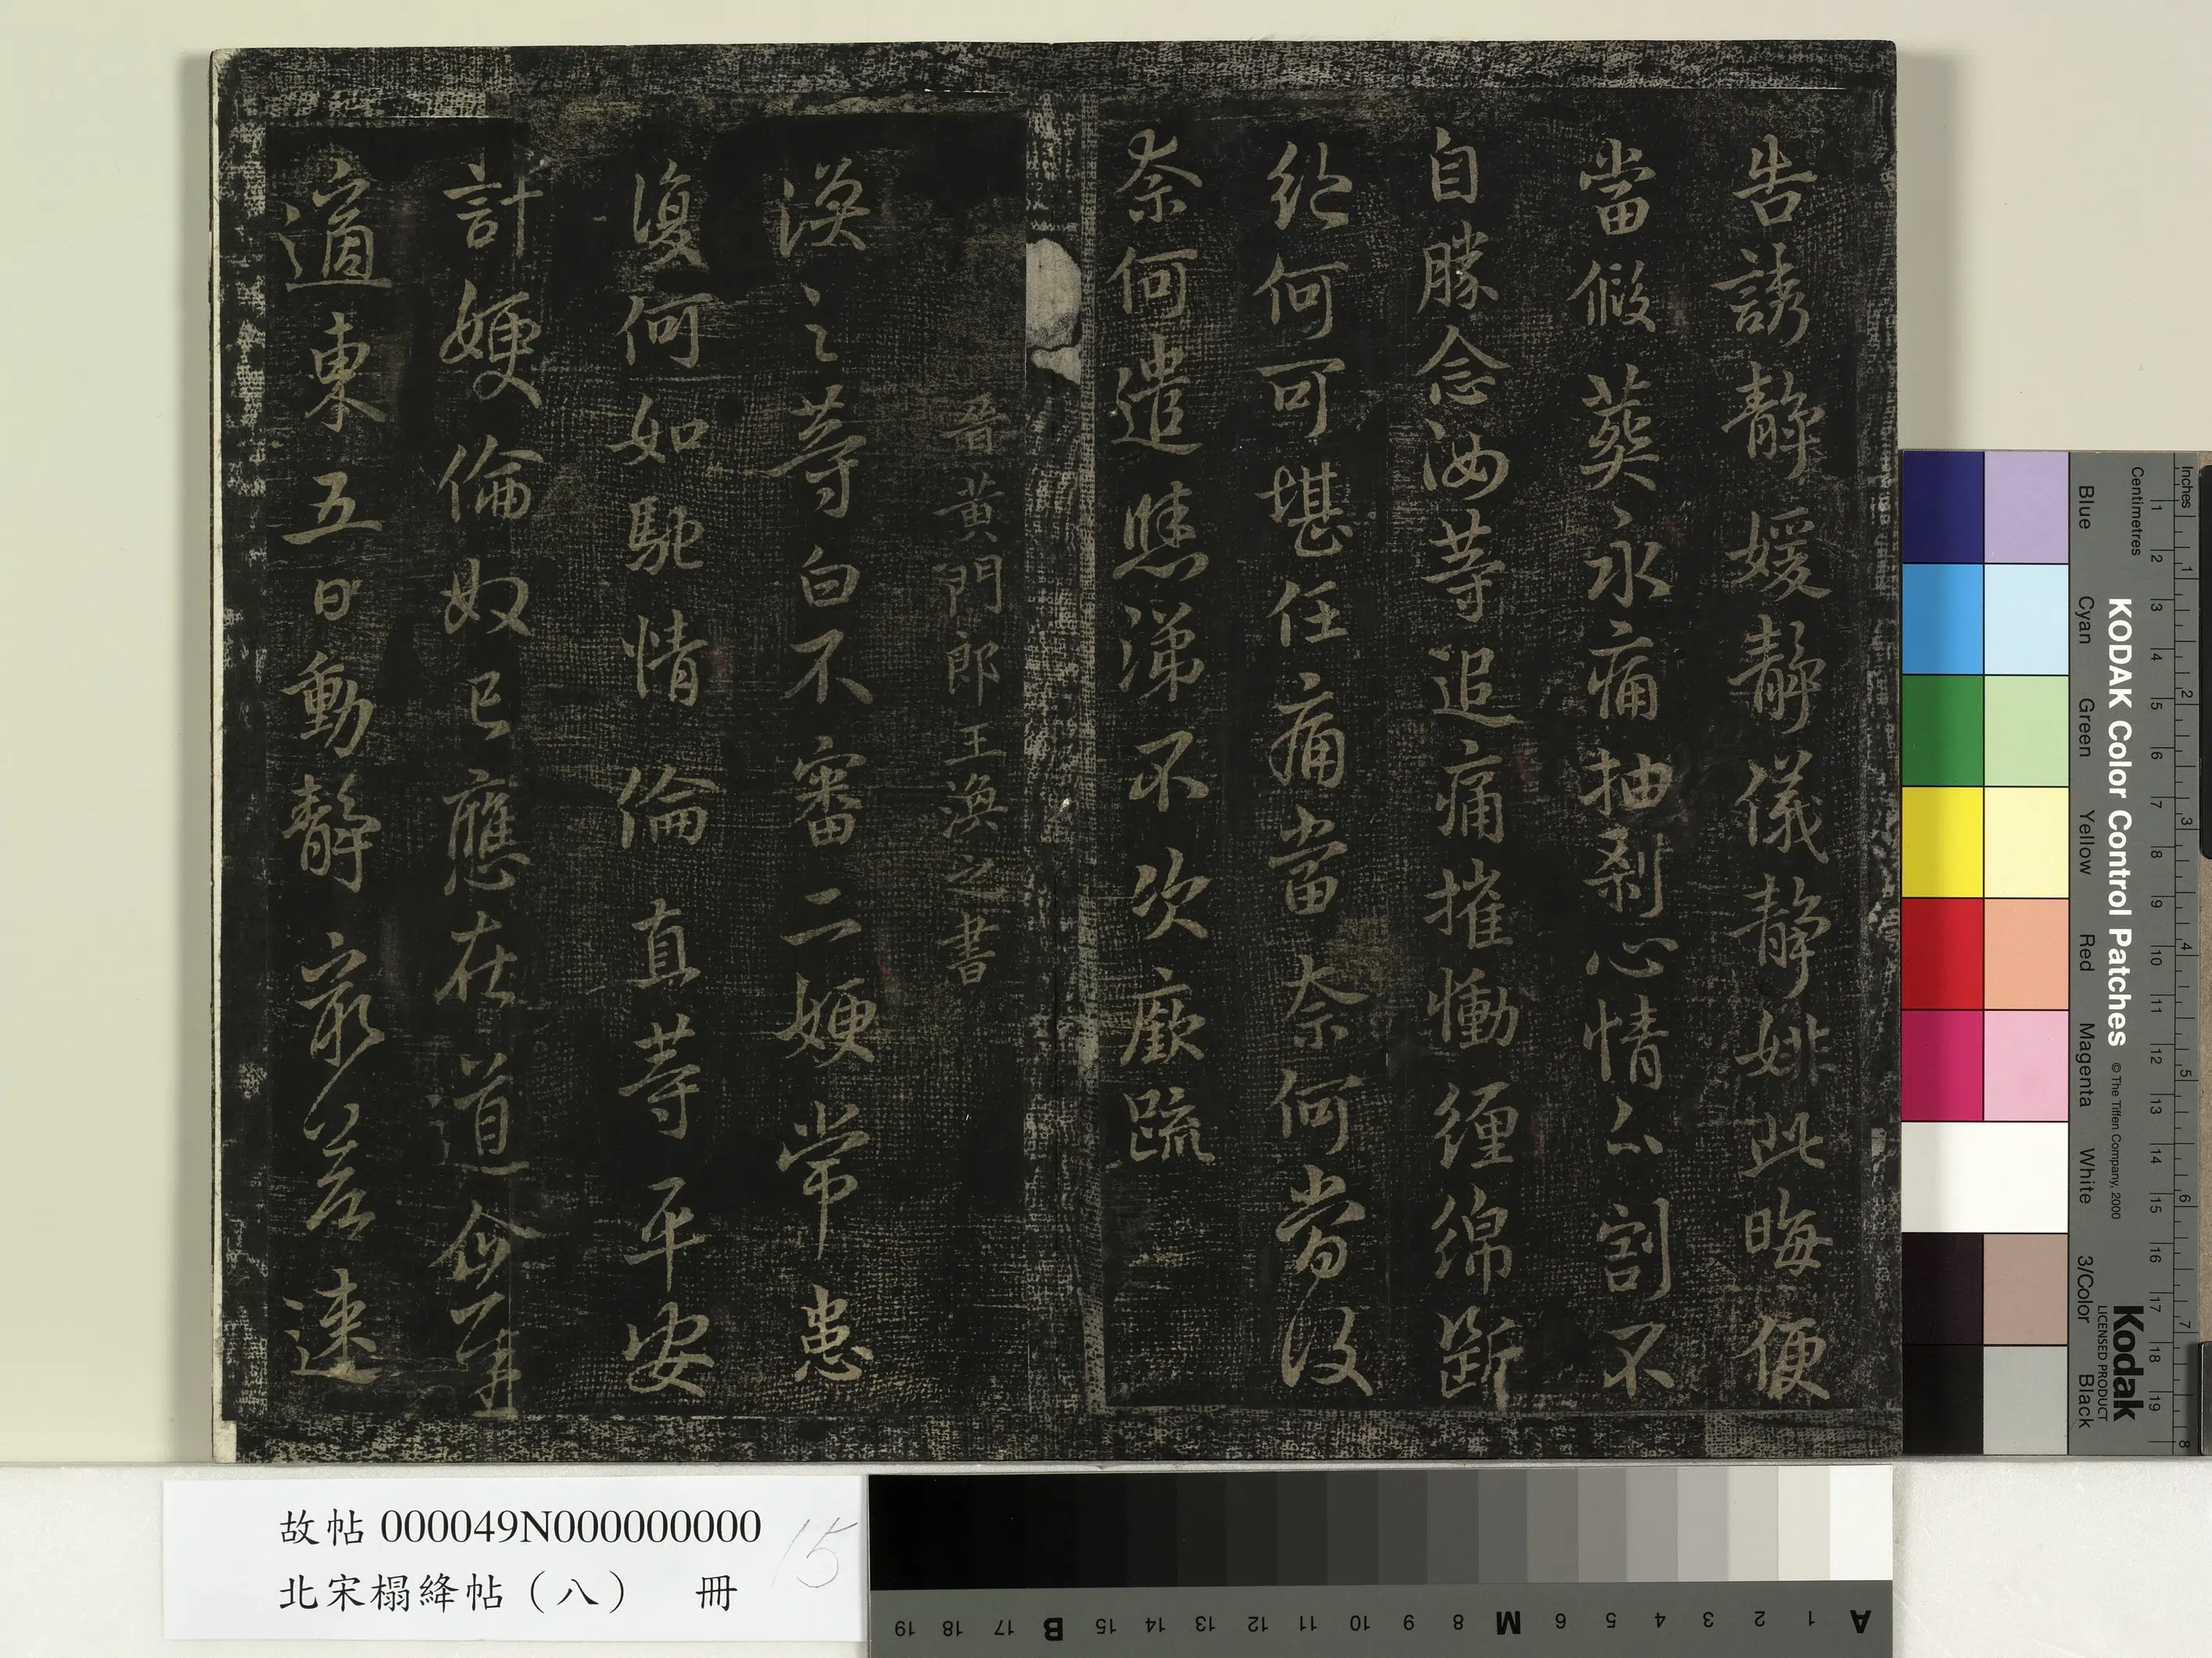 告誘靜媛靜儀靜姚此晦便
當假葬永痛抽剥心情分割不
自勝念汝等追痛摧慟纏綿斷
絕何可堪任痛當奈何當復
奈何遣慘涕不次廞疏
晉黃門郎王渙之書
渙之等白不審二嫂常患
復何如馳情倫直等平安
計嫂倫奴已應在道
適東五日動靜最差速
故帖000049N000000000
北宋榻絳帖（八） 冊
15
KODAK Color Control Patches
© The Tiffen Company, 2000
Kodak
LICENSED PRODUCT
Blue Cyan Green Yellow Red Magenta White 3/Color Black
Inches 1 2 3 4 5 6 7 8
Centimetres 1 2 3 4 5 6 7 8 9 10 11 12 13 14 15 16 17 18 19
A 1 2 3 4 5 6 M 8 9 10 11 12 13 14 15 B 17 18 19